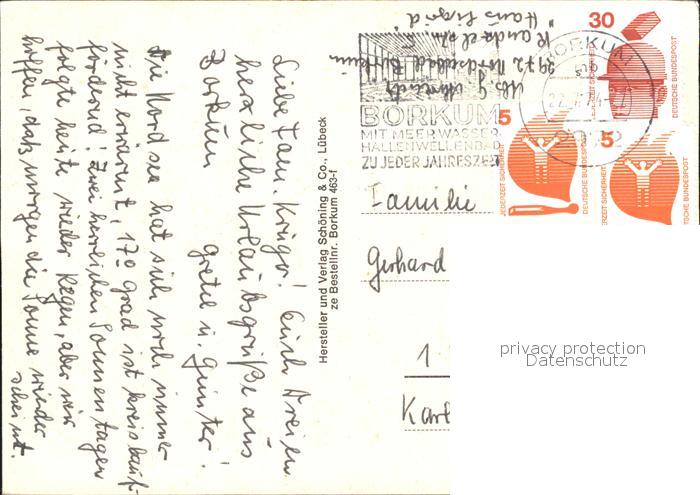 Liebe Fam. Krüger! Euch Dreien
herzliche Urlaubsgrüße aus
Borkum
Gretel u. Günter!
Die Nordsee hat sich noch immer
nicht erwärmt, 17° Grad ist kreislauf-
fördernd! Zwei herrlichen Sonnentagen
folgte heute wieder Regen, aber wir
hoffen, daß morgen die Sonne wieder
scheint.
Hersteller und Verlag Schöning & Co., Lübeck
ze Bestellnr. Borkum 463-f
2972 Nordseebad Borkum
"Haus Sigrid"
BORKUM
MIT MEERWASSER
HALLENWELLENBAD
ZU JEDER JAHRESZEIT
BORKUM
2972
30
JEDERZEIT SICHERHEIT
DEUTSCHE BUNDESPOST
5
JEDERZEIT SICHERHEIT
DEUTSCHE BUNDESPOST
5
JEDERZEIT SICHERHEIT
DEUTSCHE BUNDESPOST
Familie
Gerhard
1
Karl
privacy protection
Datenschutz